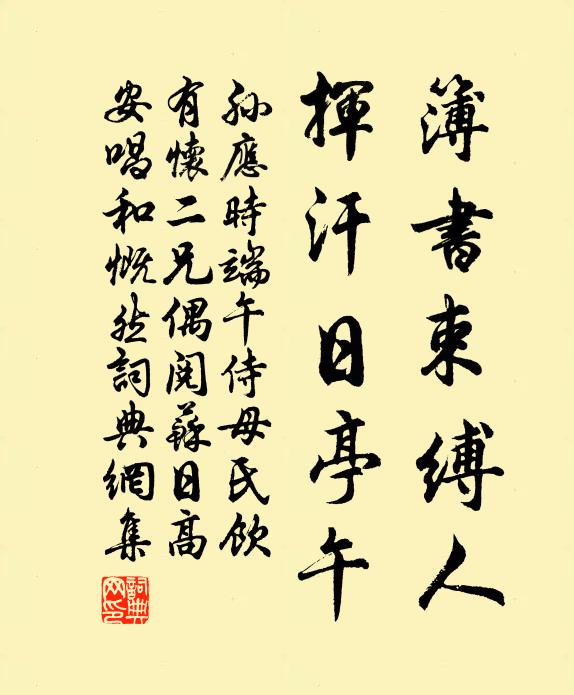 簿書束縛人
揮汗日亭午
孫應時端午侍母氏飲
有懷二兄偶閱蘇日高
安唱和慨然詞典網集
詞典網印